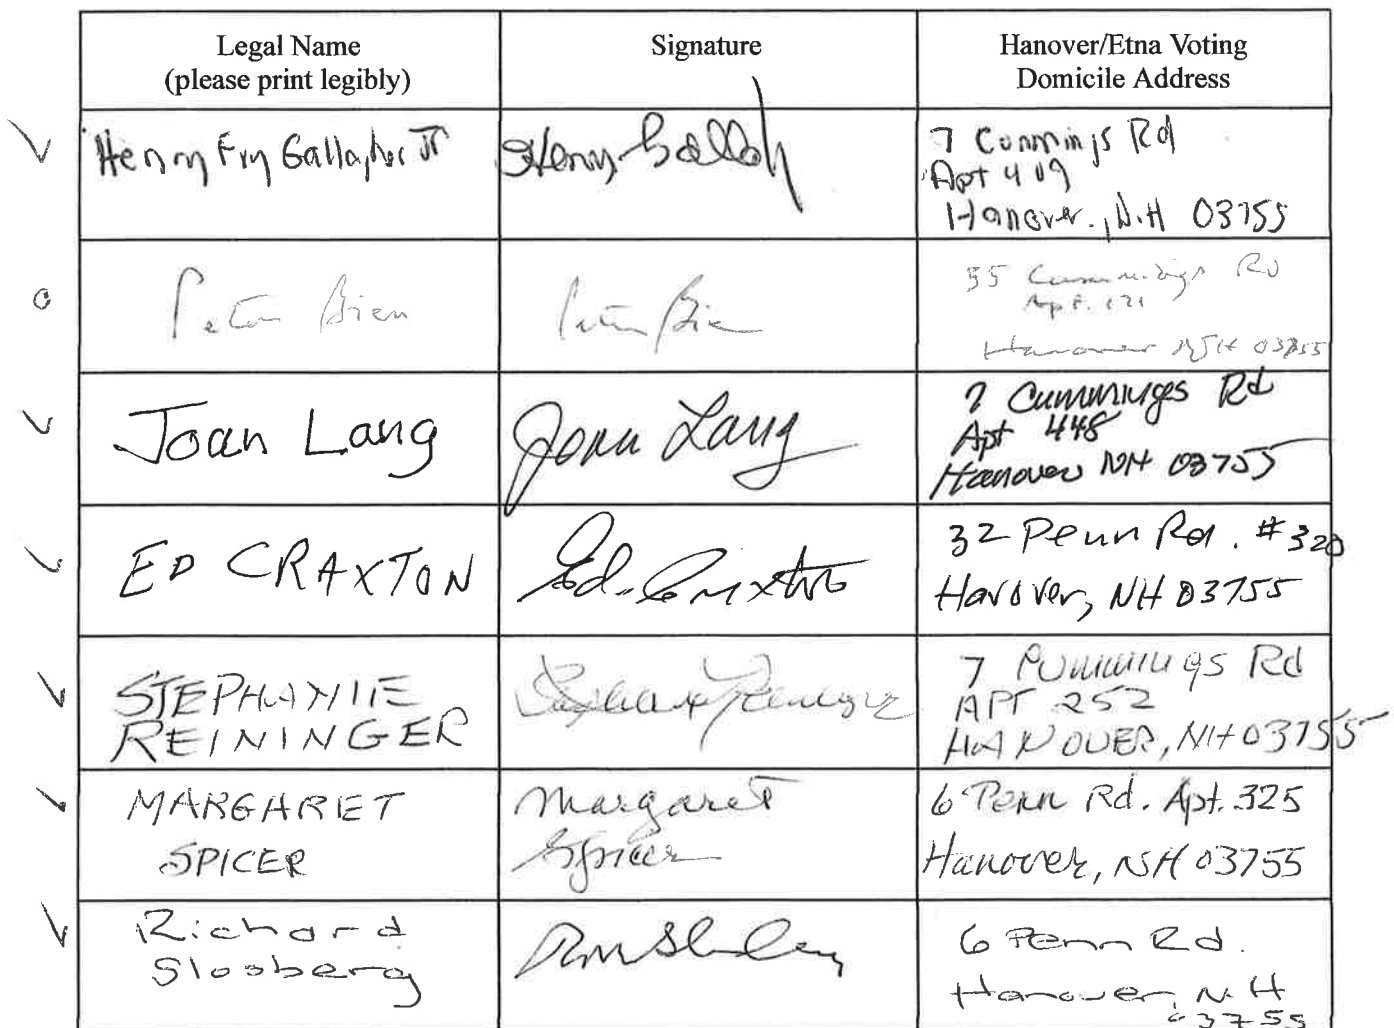 Legal Name
(please print legibly)
Signature
Hanover/Etna Voting
Domicile Address
Henry Fry Gallagher Jr
Henry Gallagh
7 Cummings Rd
Apt 409
Hanover, N.H 03755
Peter Bien
Peter Bien
55 Cummings Rd
Apt. 121
Hanover NH 03755
Joan Lang
Joan Lang
7 Cummings Rd
Apt 448
Hanover NH 03755
ED CRAXTON
Ed Craxton
32 Penn Rd. #320
Hanover, NH 03755
STEPHANIE
REININGER
Stephanie Reininger
7 Cummings Rd
APT 252
HANOVER, NH 03755
MARGARET
SPICER
Margaret
Spicer
6 Penn Rd. Apt. 325
Hanover, NH 03755
Richard
Slosberg
6 Penn Rd.
Hanover, N.H
03755